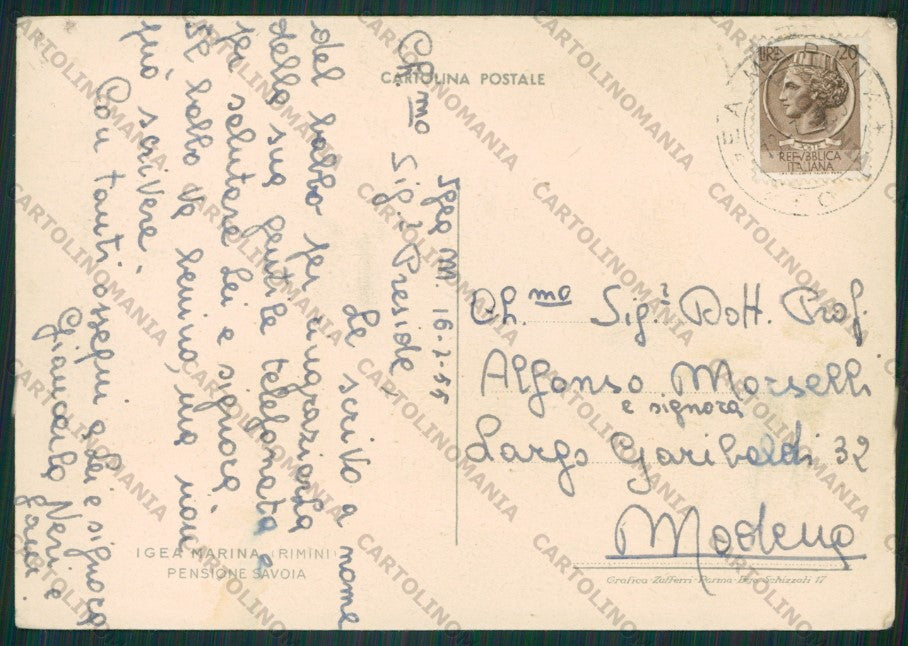 CARTOLINA POSTALE
LIRE 20
REPVBBLICA
ITALIANA
Igea M. 16-7-55
Ch.mo Sig.r Preside,
Le scrivo a nome
del babbo per ringraziarla
della sua gentile telefonata e
per salutare Lei e signora.
Se babbo va benino, ma non
può scrivere.
Con tanti ossequi a Lei e signora
Giancarlo Neri e
Ch.mo Sig.r Dott. Prof.
Alfonso Morselli
e signora
Largo Garibaldi 32
Modena
IGEA MARINA (RIMINI)
PENSIONE SAVOIA
Grafica Zafferri - Parma - B.go Schizzati 17
CARTOLINOMANIA